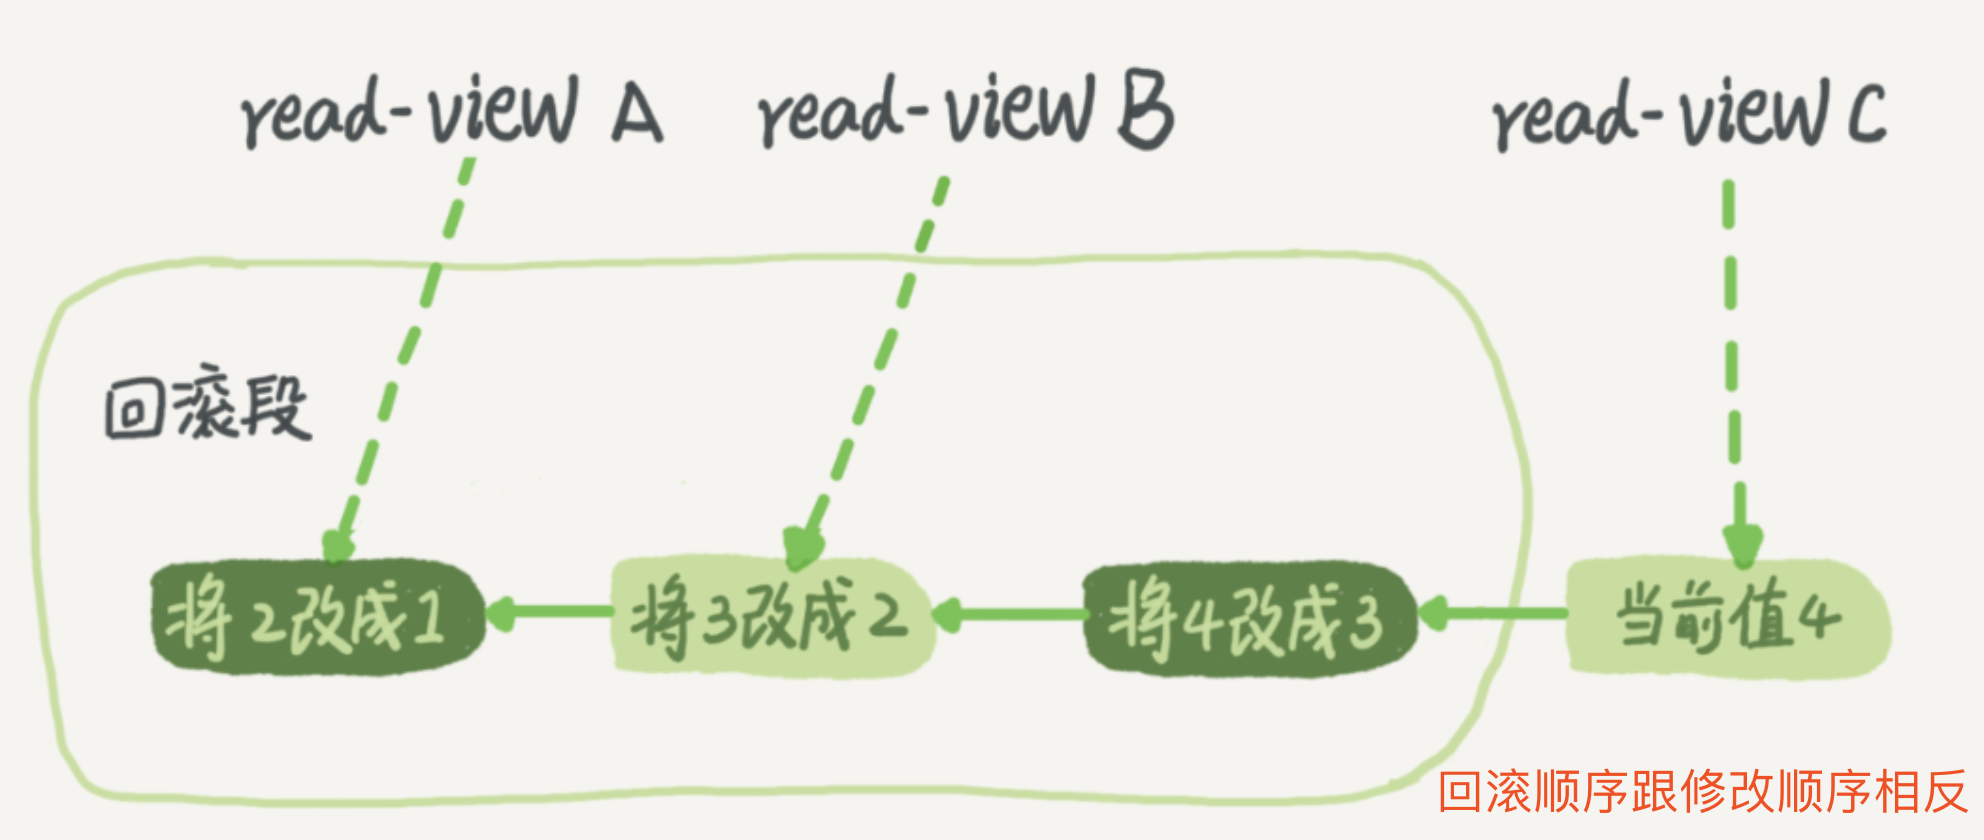 read-view A
read-view B
read-view C
回滚段
将2改成1
将3改成2
将4改成3
当前值4
回滚顺序跟修改顺序相反